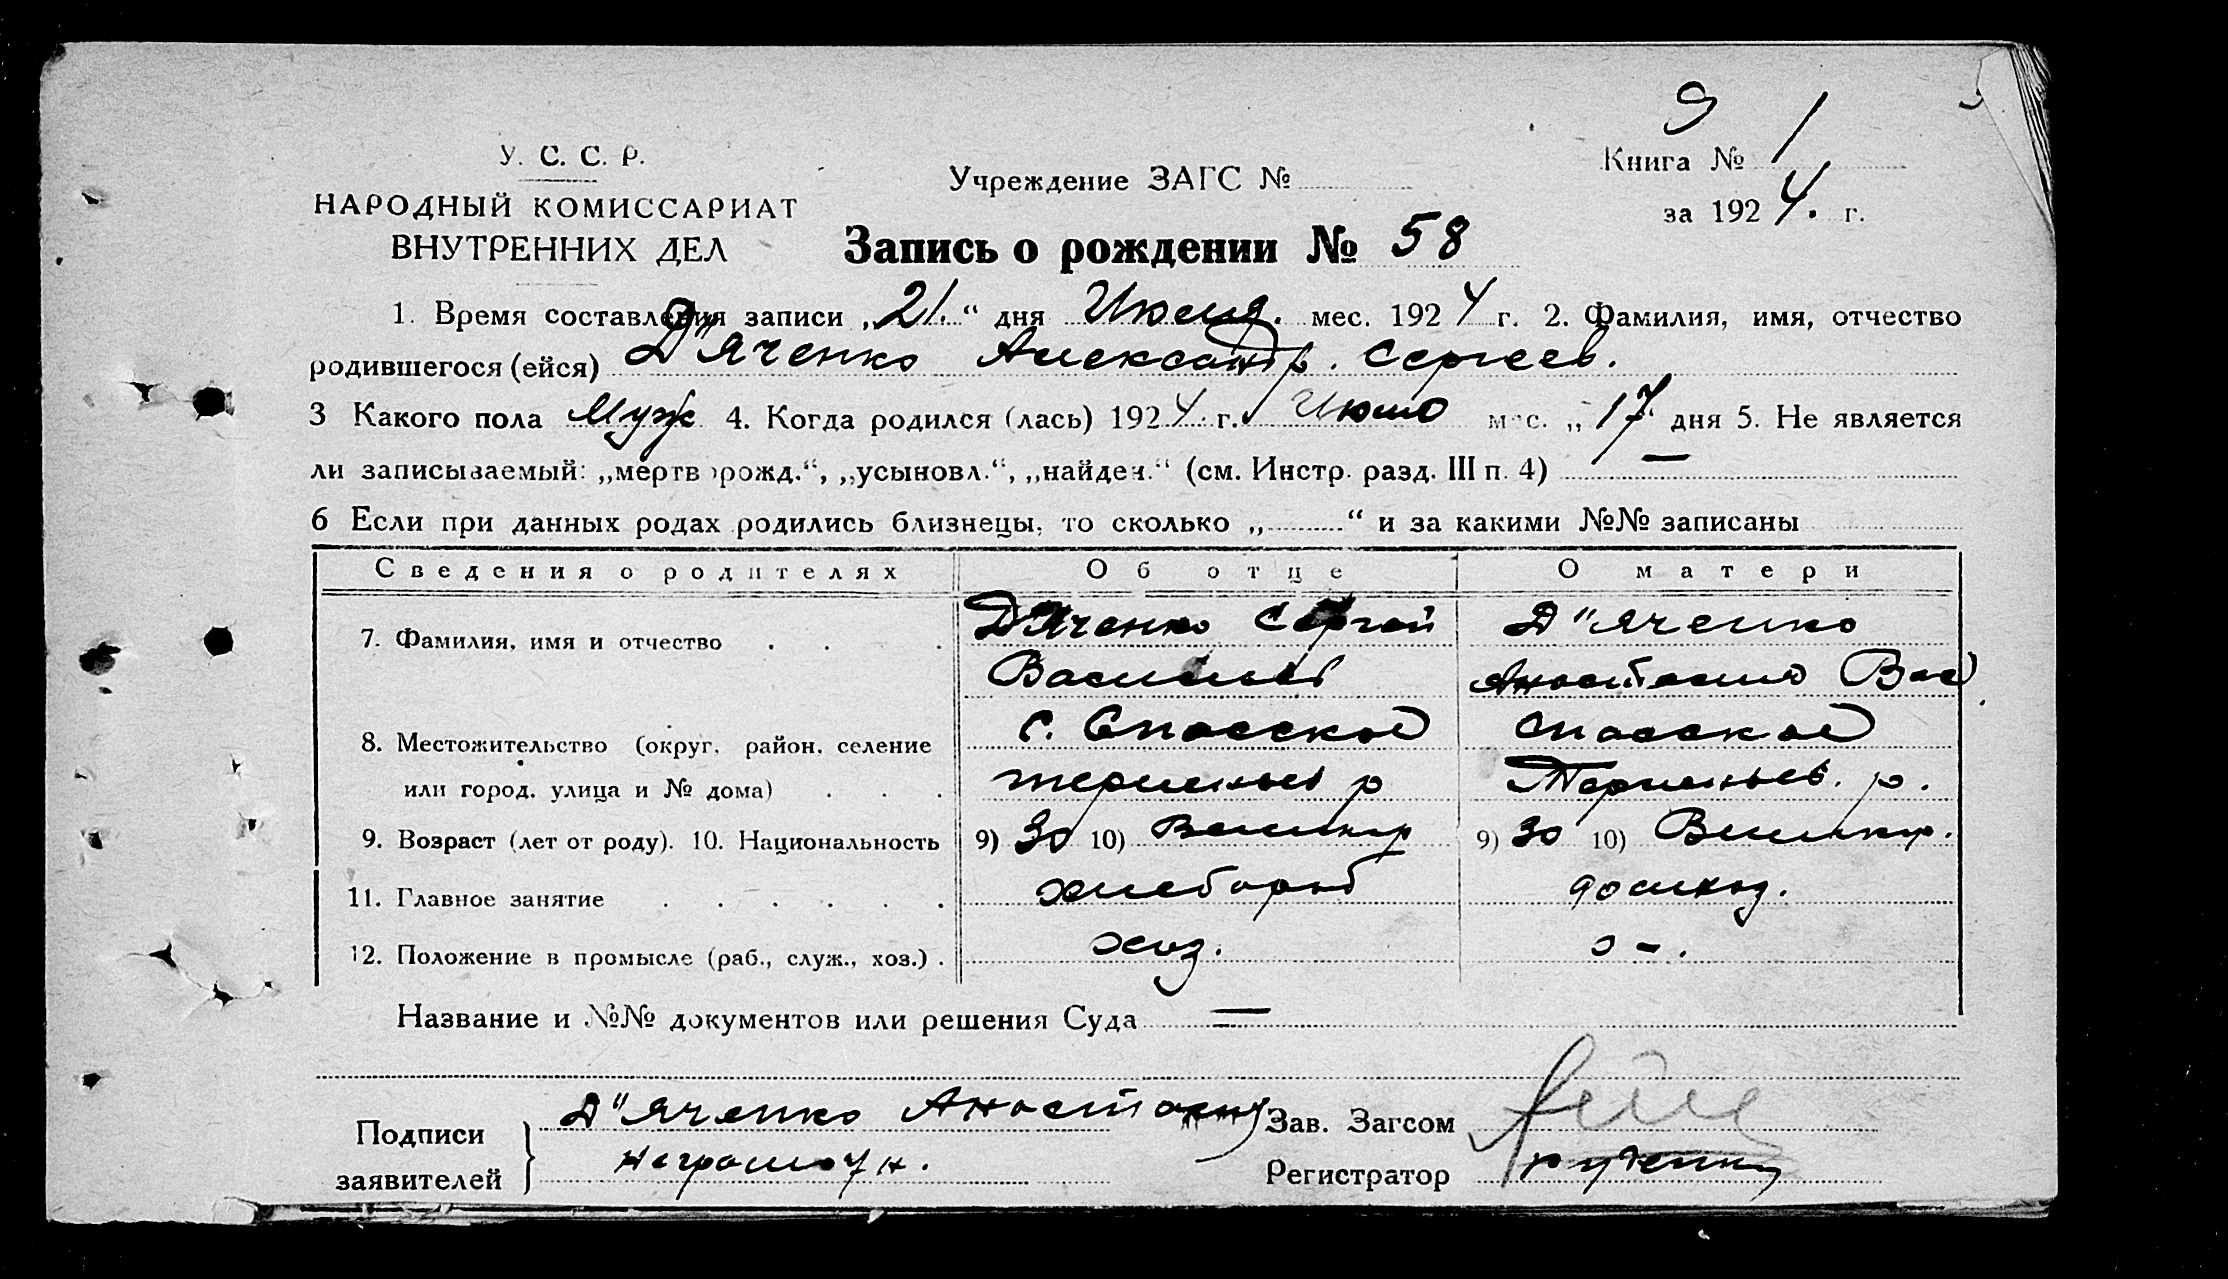 9
У. С. С. Р.
Учреждение ЗАГС №
Книга № 1
НАРОДНЫЙ КОМИССАРИАТ
за 1924. г.
ВНУТРЕННИХ ДЕЛ
Запись о рождении № 58
1. Время составления записи „21.“ дня Июля. мес. 1924 г. 2. Фамилия, имя, отчество
родившегося (ейся) Д"Яченко Александр. Сергеев.
3 Какого пола Муж 4. Когда родился (лась) 1924 г. Июлю мес. „17“ дня 5. Не является
ли записываемый: „мертворожд.“, „усыновл.“, „найден.“ (см. Инстр. разд. III п. 4) —
6 Если при данных родах родились близнецы, то сколько „ “ и за какими №№ записаны
Сведения о родителях Об отце О матери
7. Фамилия, имя и отчество Д"Яченко Сергей Д"яченко
Васильев Анастасия Вас
8. Местожительство (округ, район, селение с. Спасское Спасское
или город, улица и № дома) р Р.
9. Возраст (лет от роду). 10. Национальность 9) 30 10) Великор 9) 30 10) Великор.
11. Главное занятие хлебороб домход.
12. Положение в промысле (раб., служ., хоз.) хоз. -.
Название и №№ документов или решения Суда —
Подписи заявителей Д"яченко Анастасия
неграмотн.
Зав. Загсом
Регистратор